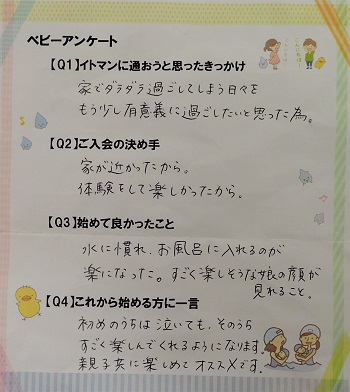 ベビーアンケート
【Q1】イトマンに通おうと思ったきっかけ
家でダラダラ過ごしてしまう日々を
もう少し有意義に過ごしたいと思った為。
【Q2】ご入会の決め手
家が近かったから。
体験をして楽しかったから。
【Q3】始めて良かったこと
水に慣れ、お風呂に入れるのが
楽になった。すごく楽しそうな娘の顔が
見れること。
【Q4】これから始める方に一言
初めのうちは泣いても、そのうち
すごく楽しんでくれるようになります。
親子共に楽しめてオススメです。